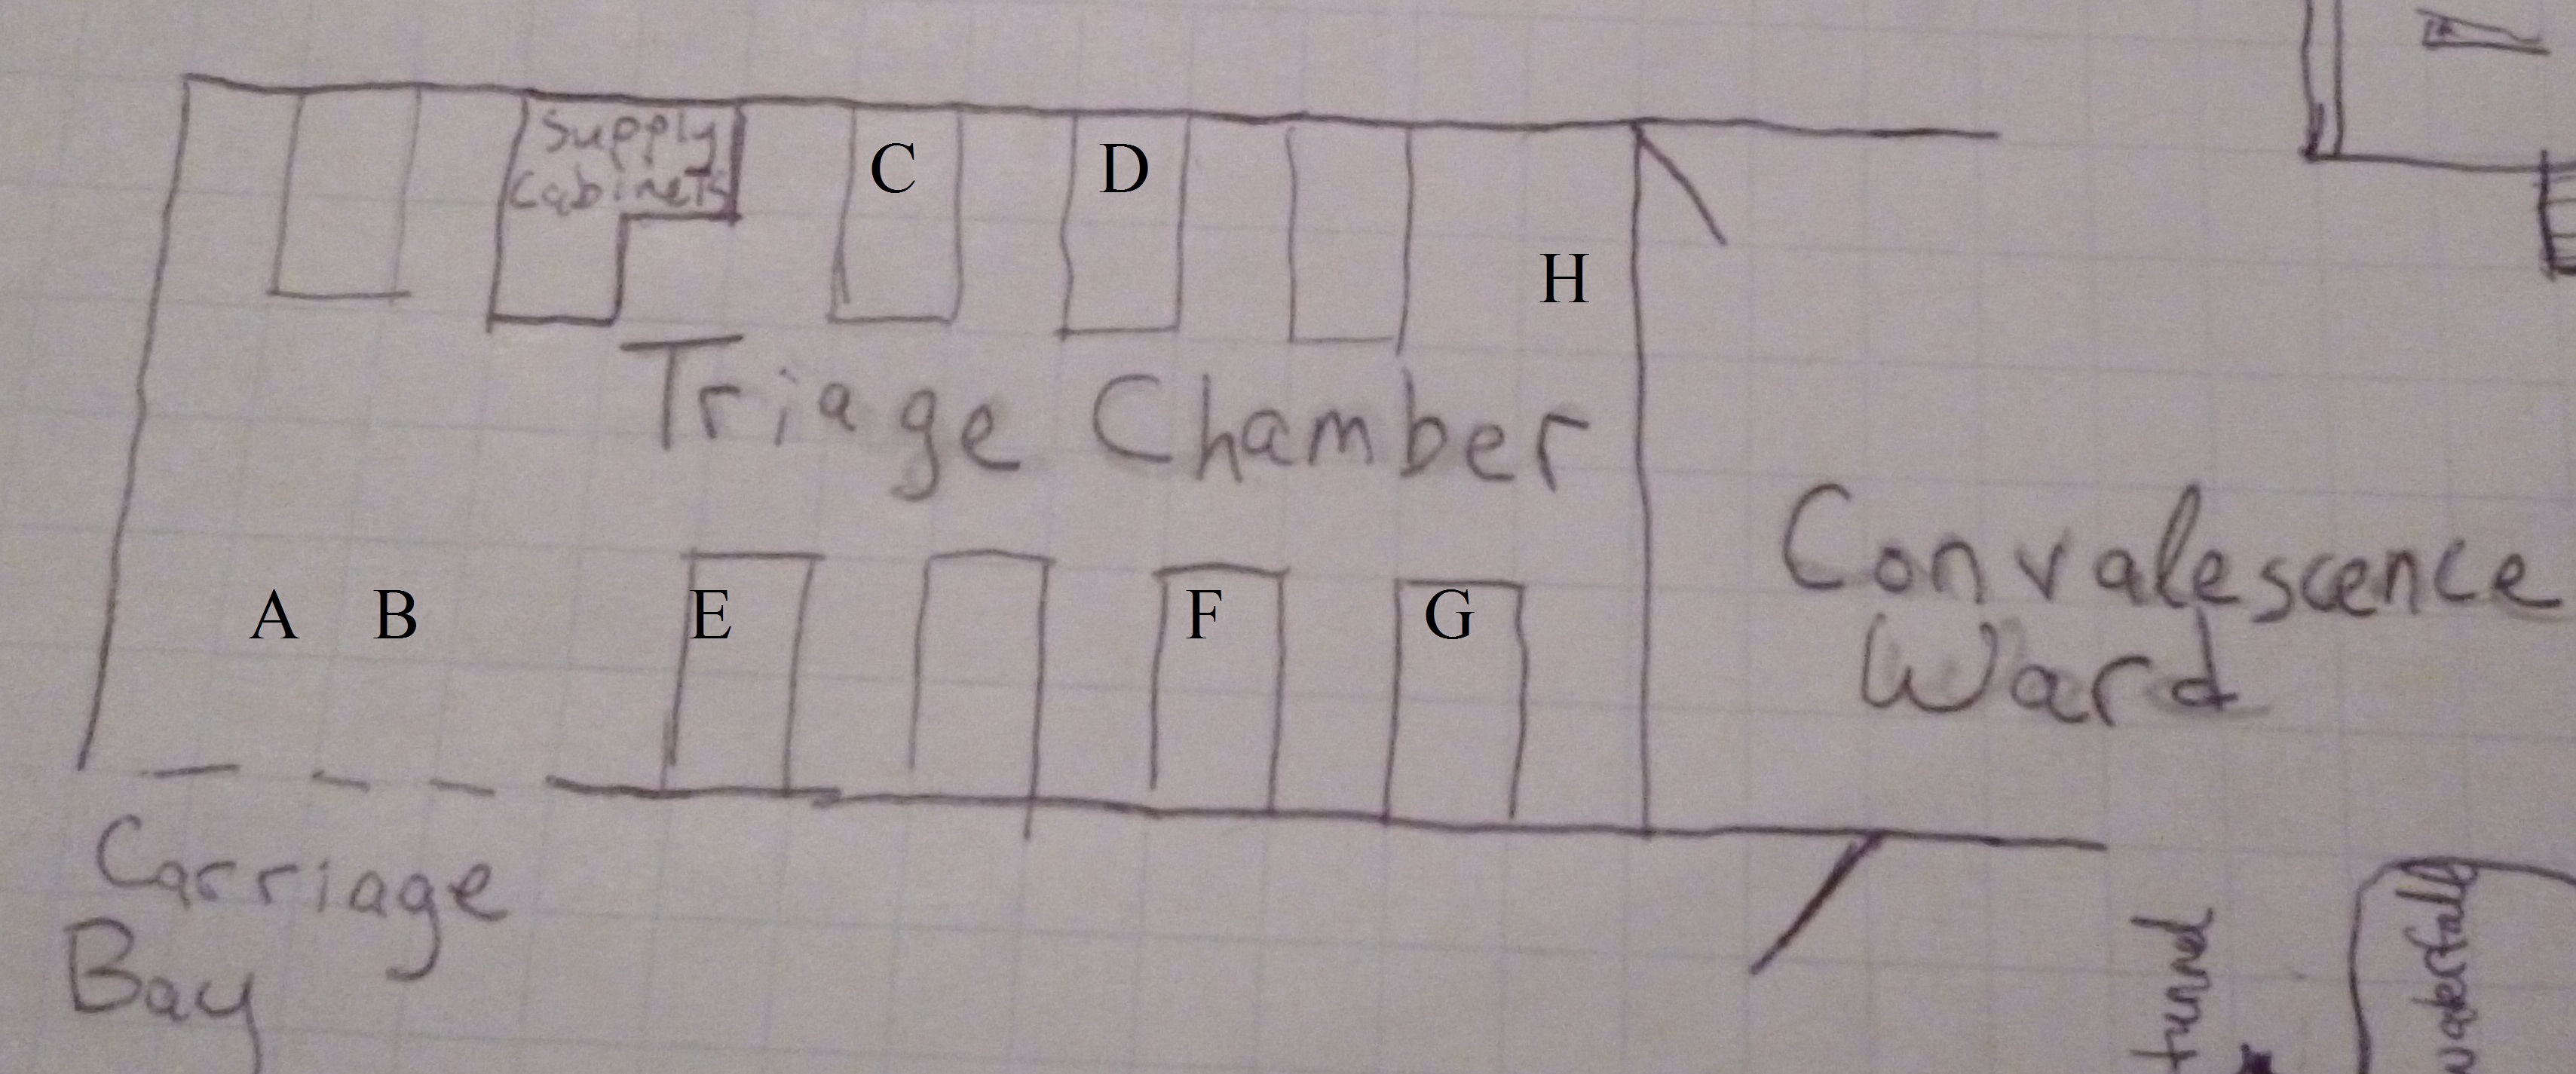 Supply
Cabinets
C
D
H
Triage Chamber
A
B
E
F
G
Convalescence
Ward
Carriage
Bay
tunnel
waterfall